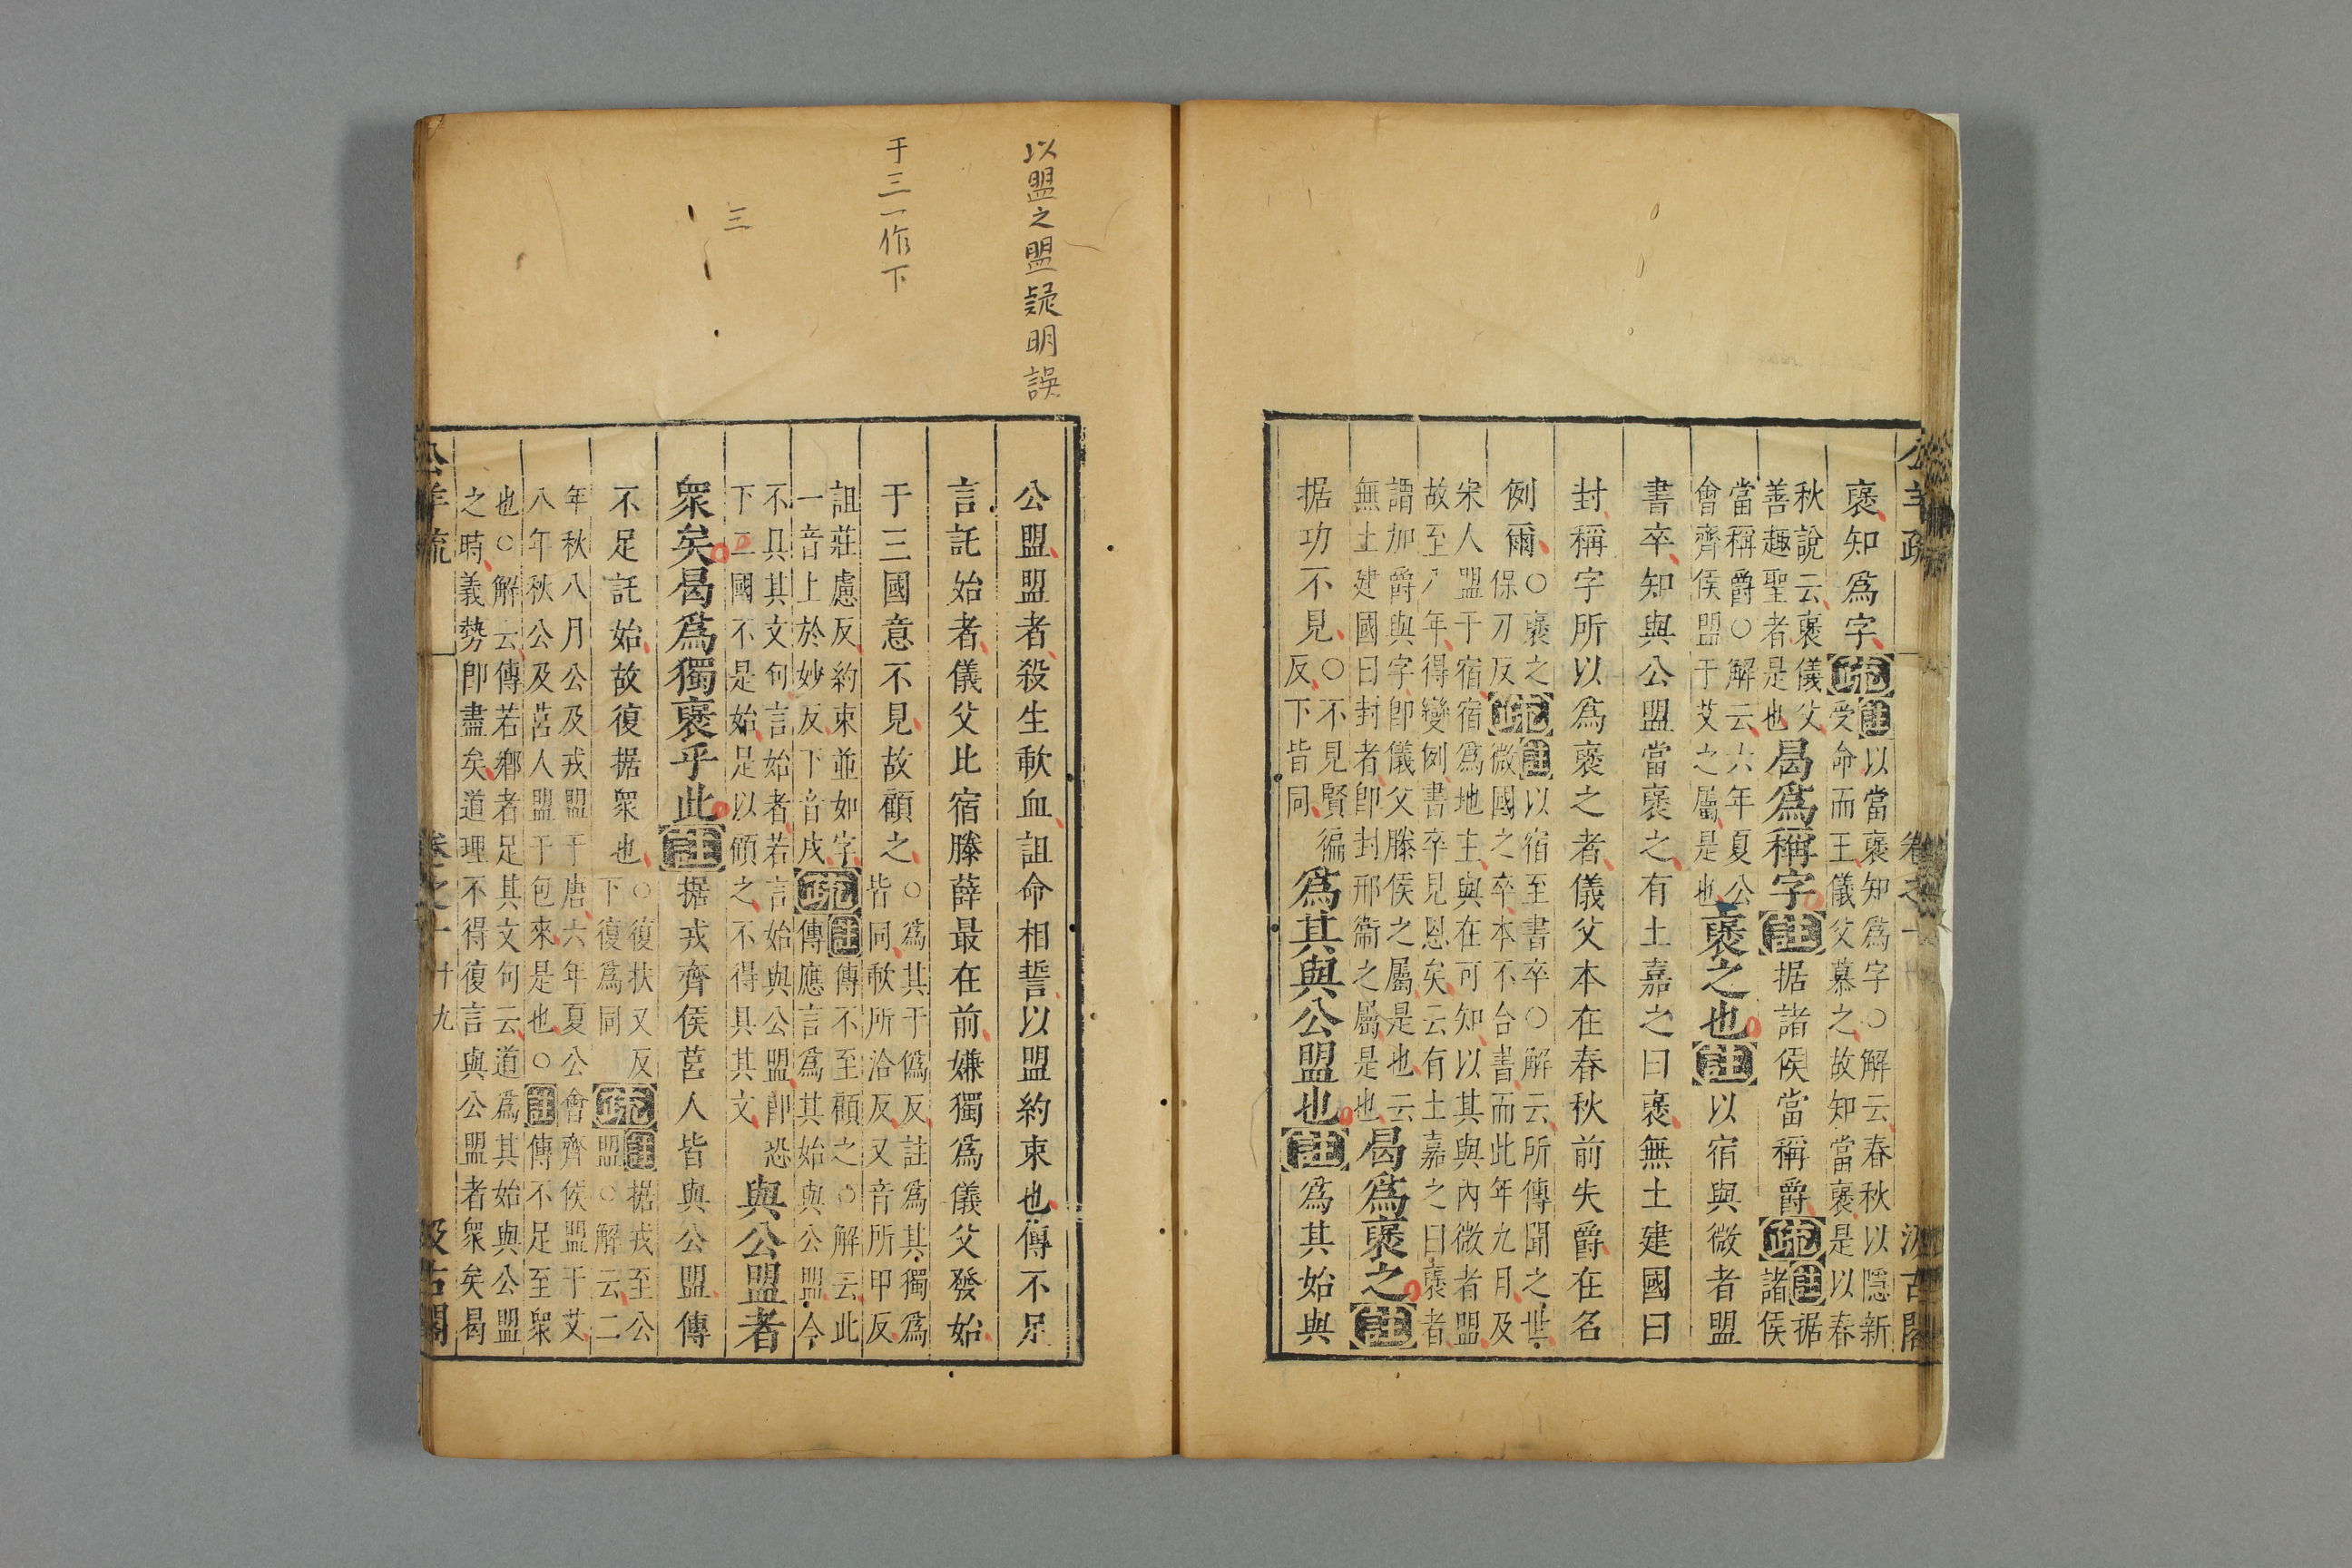 公羊疏 卷之一 汲古閣
褒知爲字疏註以當褒知爲字○解云春秋以隱新
受命而王儀父慕之故知當褒是以春
秋說云褒儀父
善趣聖者是也曷爲稱字註据諸侯當稱爵疏註据
諸侯
當稱爵○解云六年夏公
會齊侯盟于艾之屬是也褒之也註以宿與微者盟
書卒知與公盟當褒之有土嘉之曰褒無土建國曰
封稱字所以爲褒之者儀父本在春秋前失爵在名
例爾○褒之
保刀反疏註以宿至書卒○解云所傳聞之世
微國之卒本不合書而此年九月及
宋人盟于宿宿爲地主與在可知以其與內微者盟
故至八年得變例書卒見恩矣云有土嘉之曰褒者
謂加爵與字卽儀父滕侯之屬是也云
無土建國曰封者卽封邢衞之屬是也曷爲褒之註
据功不見○不見賢徧
反下皆同爲其與公盟也註爲其始與
以盟之盟疑明誤
于三一作下
三
公盟盟者殺生歃血詛命相誓以盟約束也傳不足
言託始者儀父比宿滕薛最在前嫌獨爲儀父發始
于三國意不見故顧之○爲其于僞反註爲其獨爲
皆同歃所洽反又音所甲反
詛莊慮反約束並如字
一音上於妙反下音戍疏註傳不至顧之○解云此
傳應言爲其始與公盟今
不具其文句言始者若言始與公盟卽恐
下二國不是始足以頎之不得具其文與公盟者
衆矣曷爲獨褒乎此註据戎齊侯莒人皆與公盟傳
不足託始故復据衆也○復扶又反
下復爲同疏註据戎至公
盟○解云二
年秋八月公及戎盟于唐六年夏公會齊侯盟于艾
八年秋公及莒人盟于包來是也○註傳不足至衆
也○解云傳若鄕者足其文句云道爲其始與公盟
之時義勢卽盡矣道理不得復言與公盟者衆矣曷
公羊疏 卷之一 十九 汲古閣